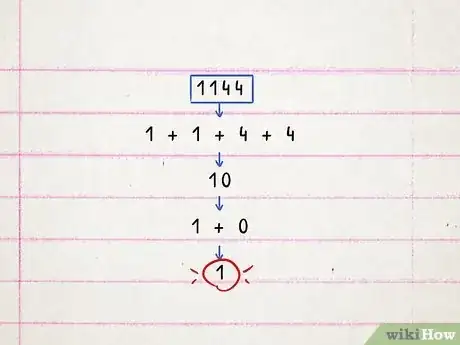 1144
1 + 1 + 4 + 4
10
1 + 0
1
wikiHow